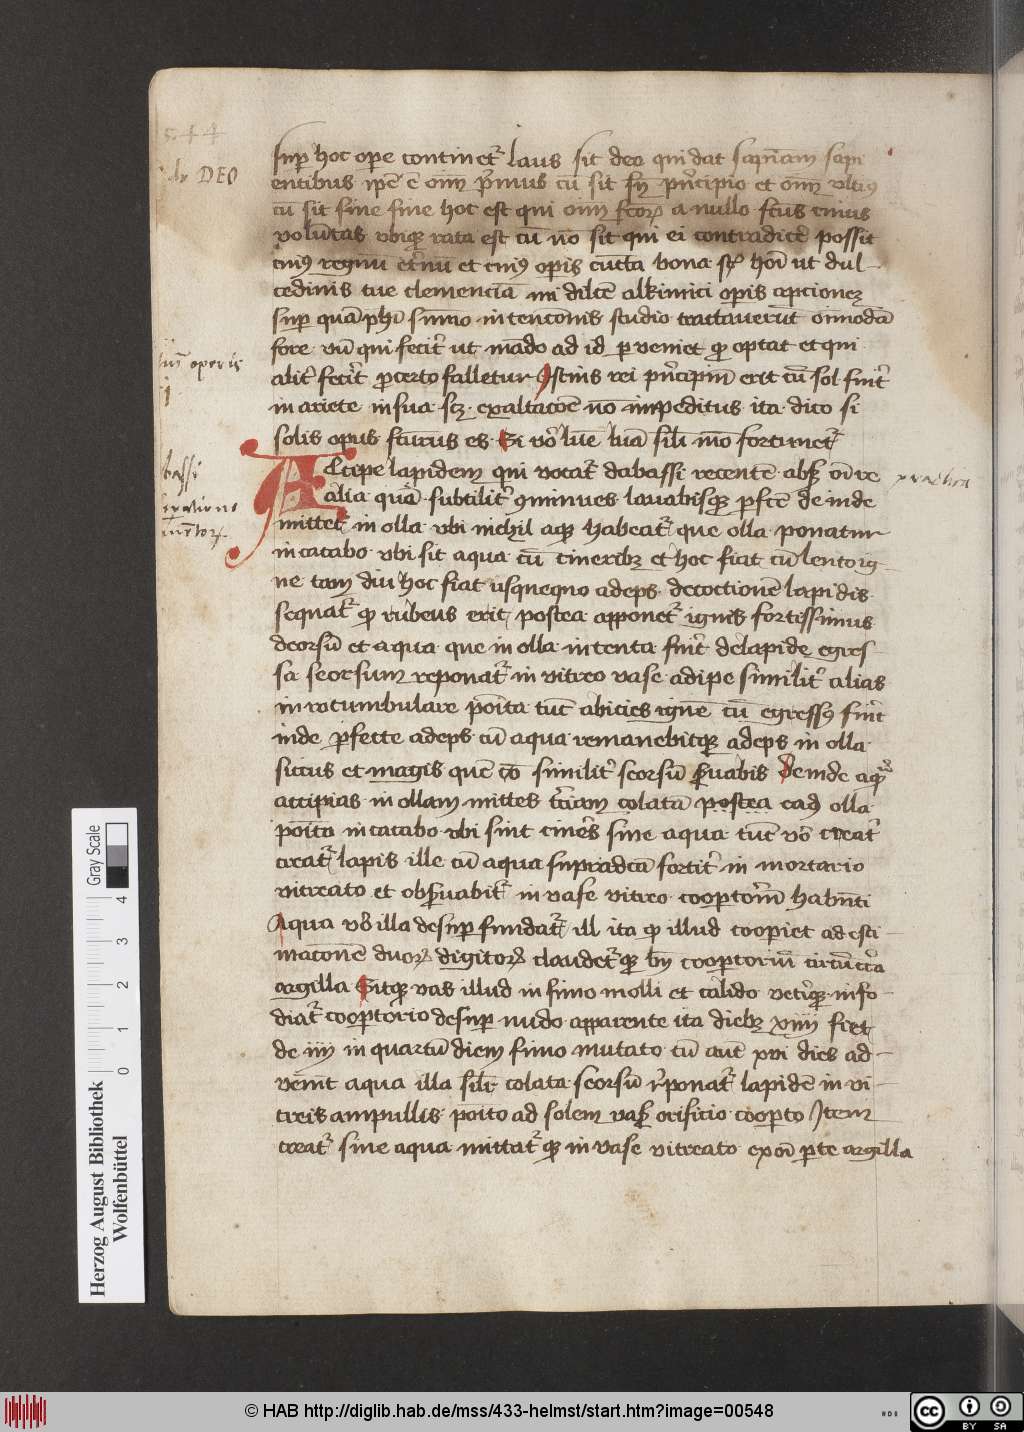 544
dr DEO
sup hoc ope continet᷑ laus sit deo qui dat sapīam sapi
entibus ip̄e ē om̄ p̄mus cū sit sn̄ pn̄cipio et om̄ vltiꝰ
cū sit sine fine hoc est qui om̄ fcoꝝ a nullo fctus cuius
volūtas vbiqꝫ rata est cū nō sit qui ei contradicē possit
cuiꝰ regnū et̄nū et cuiꝰ opis cūcta bona hoī ut dul-
cedinis tue clemenciā mi dilcē alkimici opis
sup quā phi sūmo intencōnis studio tractauerūt om̄modā
fore vn̄ qui fecit᷑ ut mādo ad id pveniet qꝫ optat et qui
alit᷑ fecīt pcerto falletur Istius rei pn̄cipiū erit cū sol fuīt
in ariete in sua scꝫ exaltacōe nō impeditus ita dico si
solis opus fcturus es Si vō lūe lunā sili mō
Accipe lapidem qui vocat᷑ dabassi recentē absqꝫ oī re
alia quā subtilit᷑ ꝯminues lauabisqꝫ pfcē deinde
mittet᷑ in olla vbi nichil aque habeat᷑ que olla ponatur
in cacabo vbi sit aqua cū cineribꝫ et hoc fiat cū lento ig-
ne tam diu hoc fiat usquequo adeps decoctionē lapidis
sequat᷑ qꝫ rubeus erit postea apponet᷑ ignis fortissimus
deorsū et aqua que in olla intenta fuīt de lapide egres
sa seorsum reponat᷑ in vitreo vase adipe similit᷑ alias
in rotumbulare poīta tūc abicies ignē cū egressꝰ fuīt
inde pfecte adeps cū aqua remanebitqꝫ adeps in olla
sitcus et magis quē similit᷑ seorsū ẜuabis Deinde
accipias in ollam mittes colatā postea olla
poīta in cacabo vbi sint cineēs sine aqua tūc vō
terat᷑ lapis ille cū aqua supradcā fortit᷑ in mortario
vitreato et obẜuabit᷑ in vase vitreo cooptoriū habn̄ti
Aqua vō illa desup fundat᷑ ill ita qꝫ illud coopiet ad esti-
macōnē duoꝝ digitoꝝ claudet᷑qꝫ bn̄ cooptoriū circūcc̄a
argilla Sitqꝫ vas illud in fimo molli et calido info-
diat᷑ cooptorio desup nudo apparente ita diebꝫ xiiii fiet
de iiii in quartū diem fimo mutato cū aut xvi dies ad-
venīt aqua illa sili colata seorsū rponat᷑ lapidē in vi-
treis ampullis poīto ad solem vasqꝫ orificio coopto Item
terat᷑ sine aqua mittat᷑qꝫ in vase vitreato exoī pte argilla
operis
bassi
practica
Herzog August Bibliothek
Wolfenbüttel
Gray Scale
0 1 2 3 4
© HAB http://diglib.hab.de/mss/433-helmst/start.htm?image=00548
cc BY SA